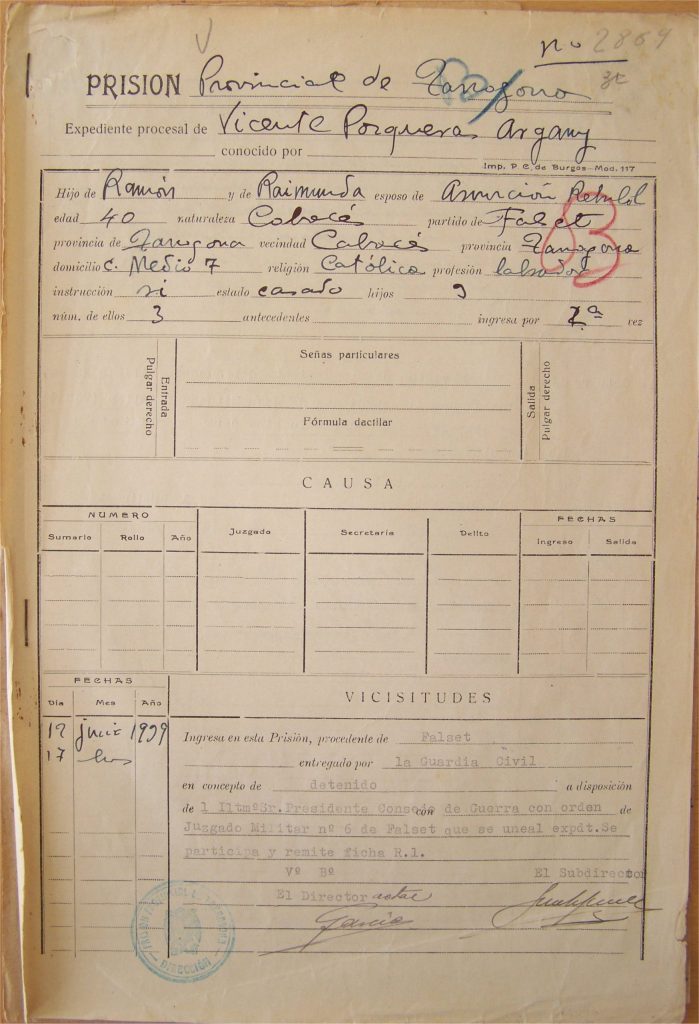 V
nº 2864
PRISION Provincial de Tarragona
Expediente procesal de Vicente Porqueras Argany
conocido por
Imp. P. C. de Burgos-Mod. 117
Hijo de Ramón y de Raimunda esposo de Asunción
edad 40 naturaleza Cabacés partido de Falset
provincia de Tarragona vecindad Cabacés provincia Tarragona
domicilio C. Medio 7 religión Católica profesión labrador
instrucción si estado casado hijos 3
núm. de ellos 3 antecedentes ingresa por 1ª vez
Entrada
Pulgar derecho
Señas particulares
Fórmula dactilar
Salida
Pulgar derecho
CAUSA
NUMERO
FECHAS
Sumario Rollo Año Juzgado Secretaria Delito Ingreso Salida
FECHAS
VICISITUDES
Dia Mes Año
12 1939
17
Ingresa en esta Prisión, procedente de Falset
entregado por la Guardia Civil
en concepto de detenido a disposición
de l IltmºSr.Presidente Consejo de Guerra con orden de
Juzgado Militar nº 6 de Falset que se uneal expdt.Se
participa y remite ficha R.l.
Vº Bº El Subdirector
El Director actal
García
DIRECCIÓN